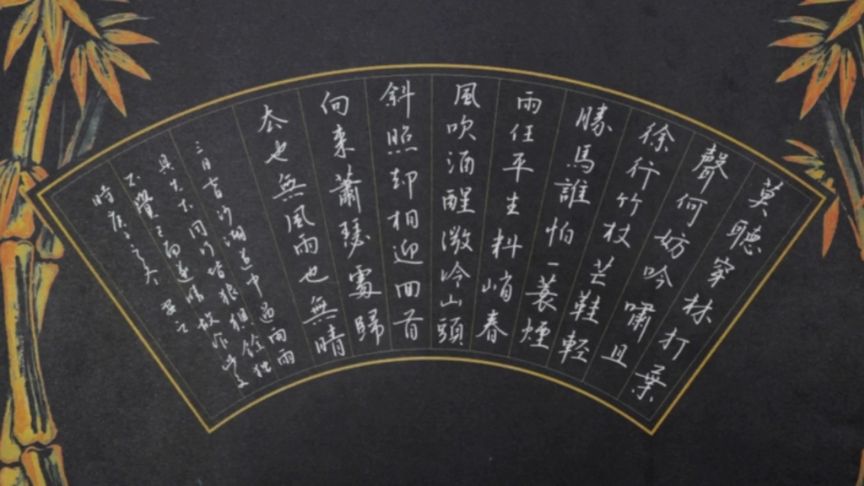 莫聽穿林打葉
聲何妨吟嘯且
徐行竹杖芒鞋輕
勝馬誰怕一蓑煙
雨任平生料峭春
風吹酒醒微冷山頭
斜照却相迎回首
向來蕭瑟處歸
去也無風雨也無晴
三月七日沙湖道中遇雨雨
具先去同行皆狼狽餘独
不覺已而遂晴故作此
時